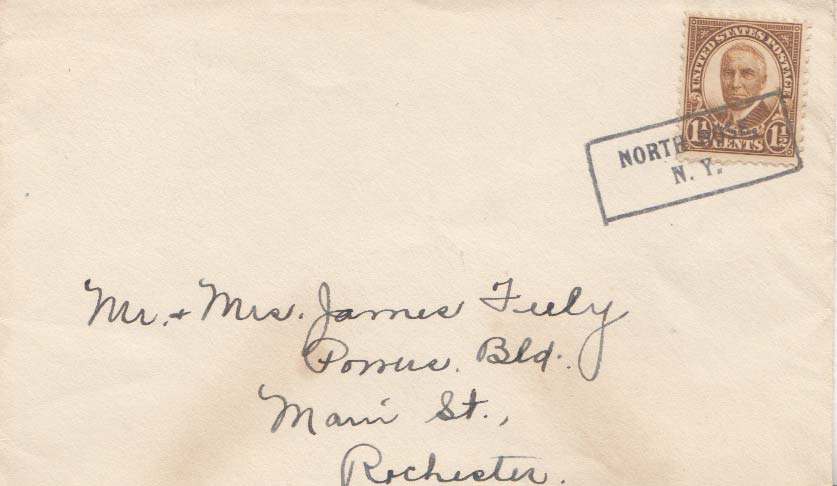 UNITED STATES POSTAGE
1½ CENTS 1½
NORTH ROSE,
N. Y.
Mr. + Mrs. James Feely
Powers Bld.
Main St.,
Rochester.